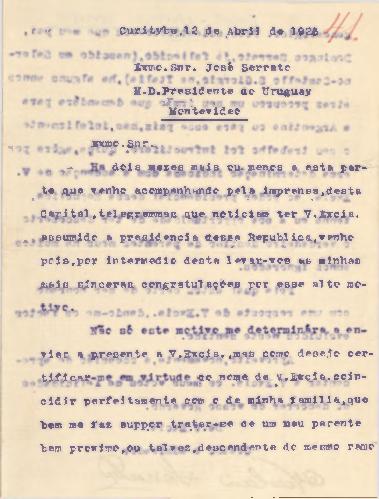 41.
Curityba, 12 de Abril de 1923
Exmc.Snr. José Serrato
M.D.Presidente do Uruguay
Montevideo
Exmo.Snr.
Ha dois mezes mais ou menos a esta par-
te que venho acompanhando pela imprensa,desta
Capital,telegrammas que noticiam ter V.Excia.
assumido a presidencia dessa Republica,venho
pois,por intermedio desta levar-vos as minhas
mais sinceras congratulações por esse alto mo-
tivo.
Não só este motivo me determinára a en-
viar a presente a V.Excia.mas como desejo cer-
tificar-me em virtude do nome de V.Excia.coin-
cidir perfeitamente com o de minha familia,que
bem me faz suppor tratar-se de um meu parente
bem proximo,ou talvez,descendente do mesmo ramo